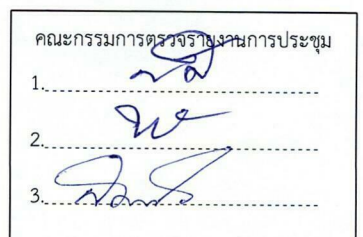 คณะกรรมการตรวจรายงานการประชุม
1.
2.
3.